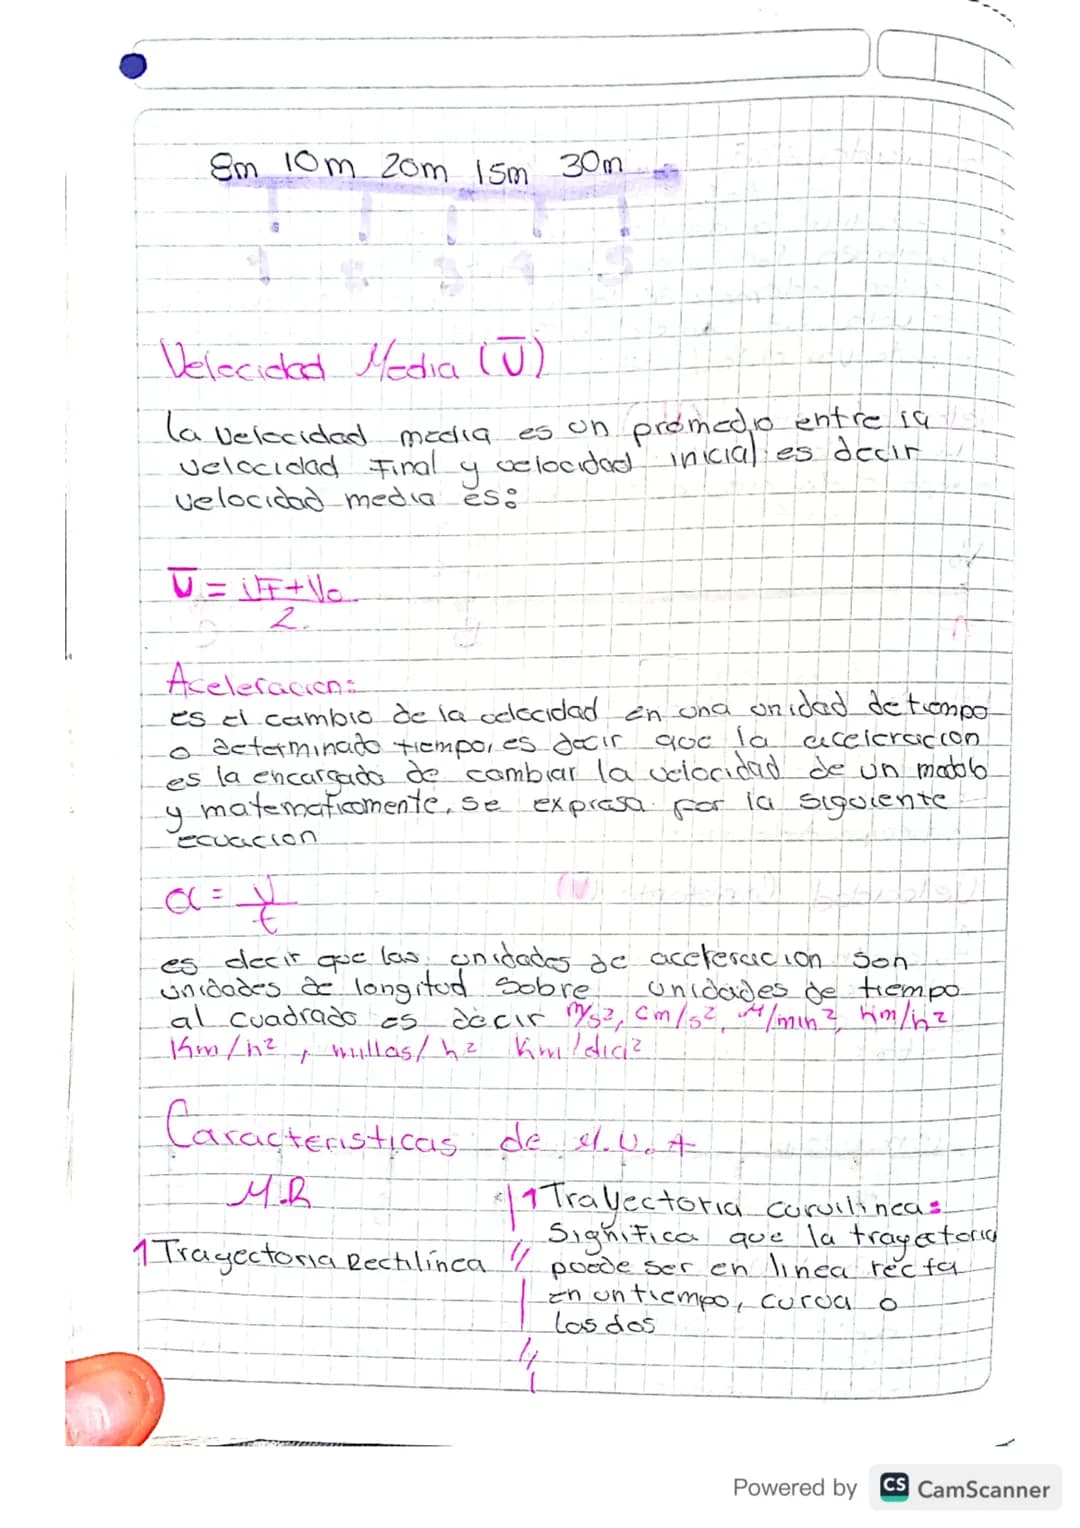 8m 10m 20m 15m 30m
1 2 3 4 5
Velocidad Media (V̅)
la velocidad media es un promedio entre la
velocidad Final y velocidad inicial es decir
velocidad media es:
V̅ = VF + Vo
2.
Aceleracion:
es el cambio de la velocidad en una unidad de tiempo
o determinado tiempo, es decir que la aceleracion
es la encargada de cambiar la velocidad de un
y matematicamente, se expresa por la siguiente
ecuacion
a = V
t
es decir que las unidades de aceleracion son
unidades de longitud sobre unidades de tiempo
al cuadrado es decir m/s², cm/s², M/min², Km/h²
Km/h², millas/h² Km/dia²
Caracteristicas de M.U.A
M.R
1 Trayectoria Rectilínea
1 Trayectoria curvilinea:
Significa que la trayectoria
puede ser en linea recta
en un tiempo, curva o
las dos
Powered by CS CamScanner